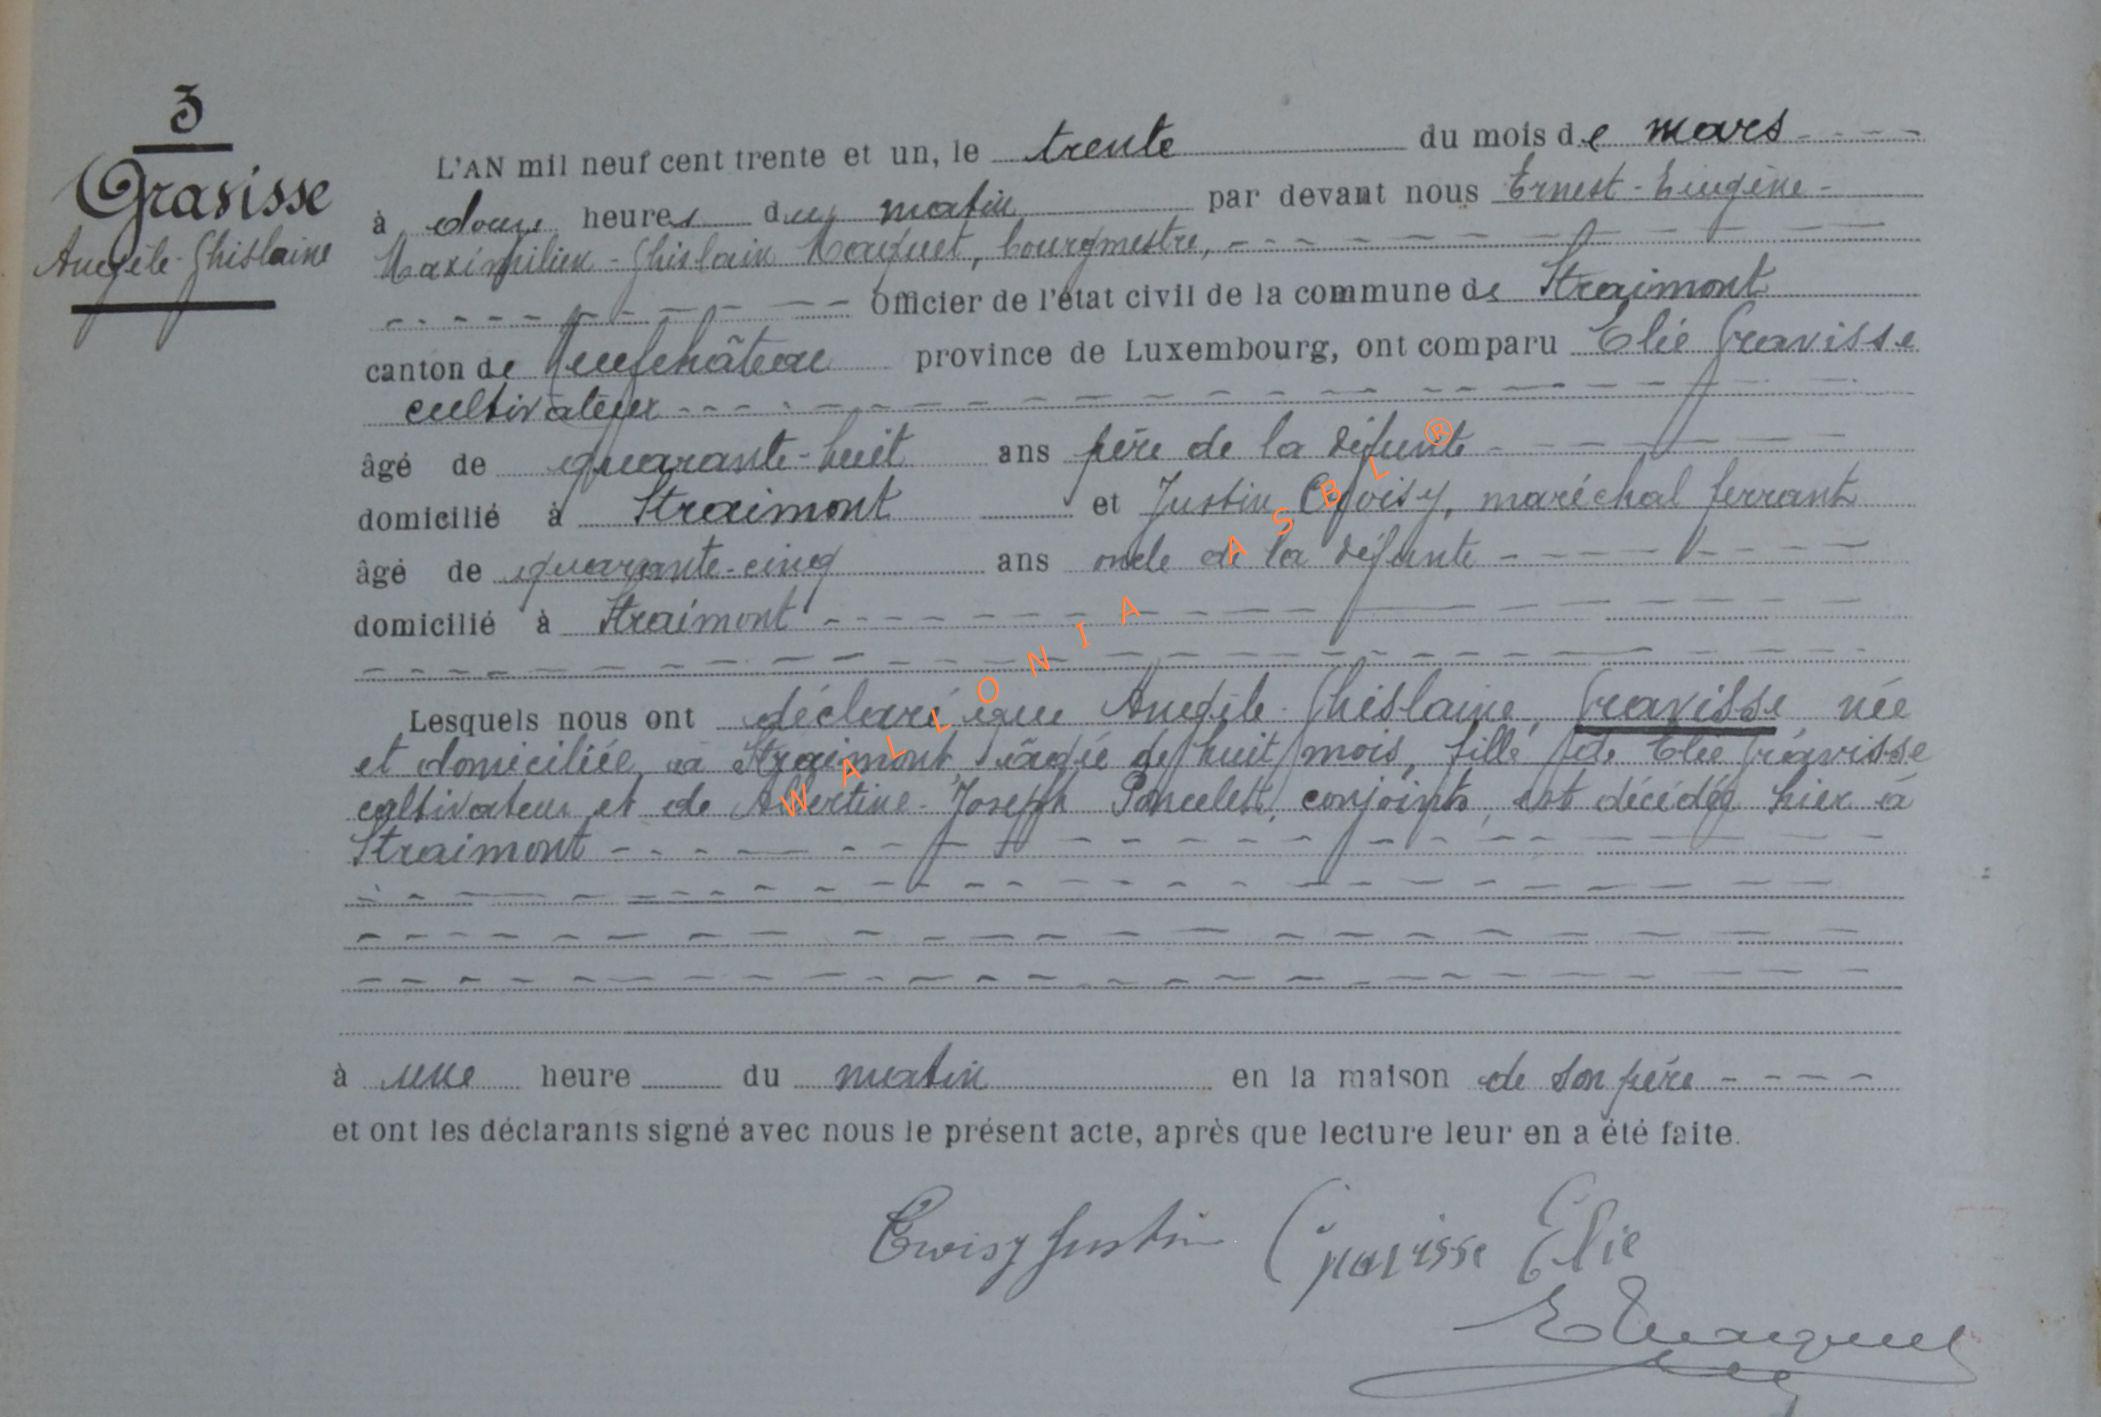 3
Gravisse
Angèle-Ghislaine
L'AN mil neuf cent trente et un, le trente du mois de mars
à onze heures du matin par devant nous Ernest-Eugène-
Maximilien-Ghislain Maquet, bourgmestre,
Officier de l'état civil de la commune de Straimont
canton de Neufchâteau province de Luxembourg, ont comparu Elie Gravisse
cultivateur
âgé de quarante-huit ans père de la défunte
domicilié à Straimont et Justin Choisy, maréchal ferrant
âgé de quarante-cinq ans oncle de la défunte
domicilié à Straimont
Lesquels nous ont déclaré que Angèle-Ghislaine, Gravisse née
et domiciliée à Straimont, âgée de huit mois, fille de Elie Gravisse
cultivateur et de Albertine-Joseph Poncelet, conjoints, est décédée hier à
Straimont
à une heure du matin en la maison de son père
et ont les déclarants signé avec nous le présent acte, après que lecture leur en a été faite.
Justin Gravisse Elie
E Maquet
WALLONIA ASBL ®